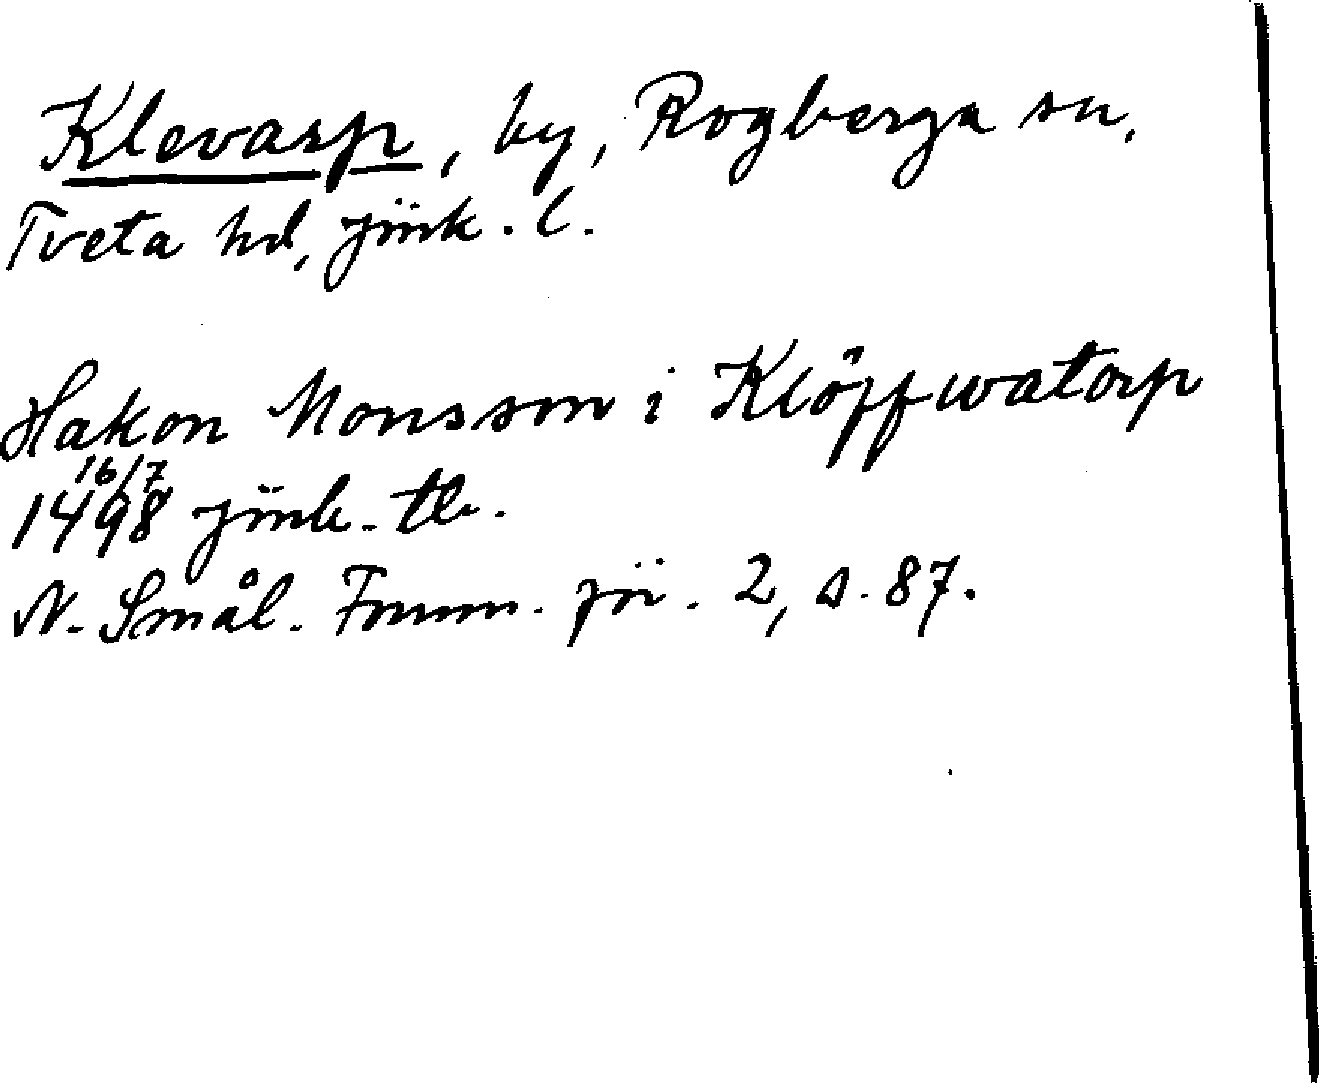 Klevarp, by, Rogberga sn,
Tveta hd, Jönk. l.
Hakon Monsson i Klöffwatorp
16/7
1498 Jönk. tb.
N. Smål. Fornm. för. 2, s. 87.